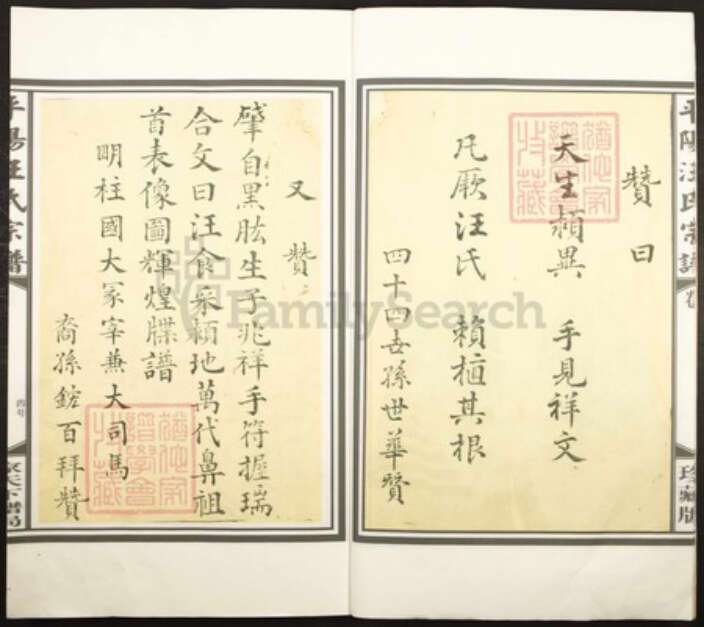 平陽汪氏宗譜
卷
珍藏版
贊曰
天生頴異　手見祥文
凡厥汪氏　賴植其根
四十四世孫世華贊
又贊
肇自黑肱生子兆祥手符握瑞
合文曰汪食采頴地萬代鼻祖
首表像圖輝煌牒譜
明柱國大冢宰兼大司馬
裔孫鋐百拜贊
平陽汪氏宗譜
家天下譜局
FamilySearch